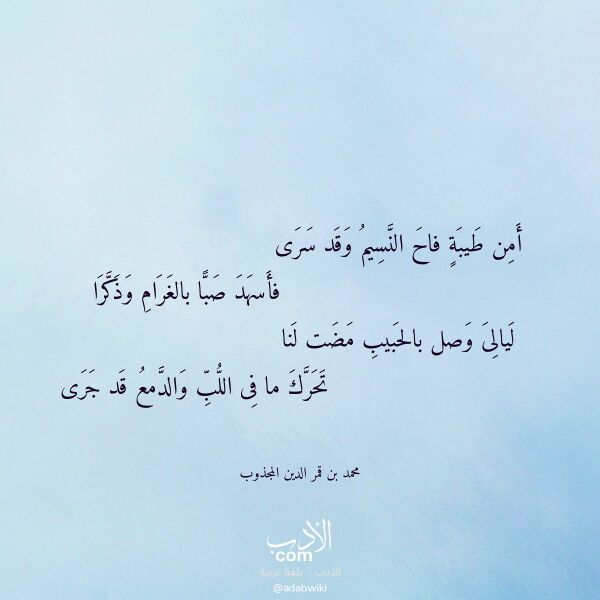 أَمِن طَيبَةٍ فاحَ النَّسِيمُ وَقَد سَرَى
فأَسهَدَ صَبًّا بالغَرَامِ وَذَكَّرَا
لَيالِىَ وَصل بالحَبيبِ مَضَت لَنا
تَحَرَّكَ ما فِى اللُّبِّ وَالدَّمعُ قَد جَرَى
محمد بن قمر الدين المجذوب
الأدب
com
الأدب .. بلغة عربية
@adabwiki